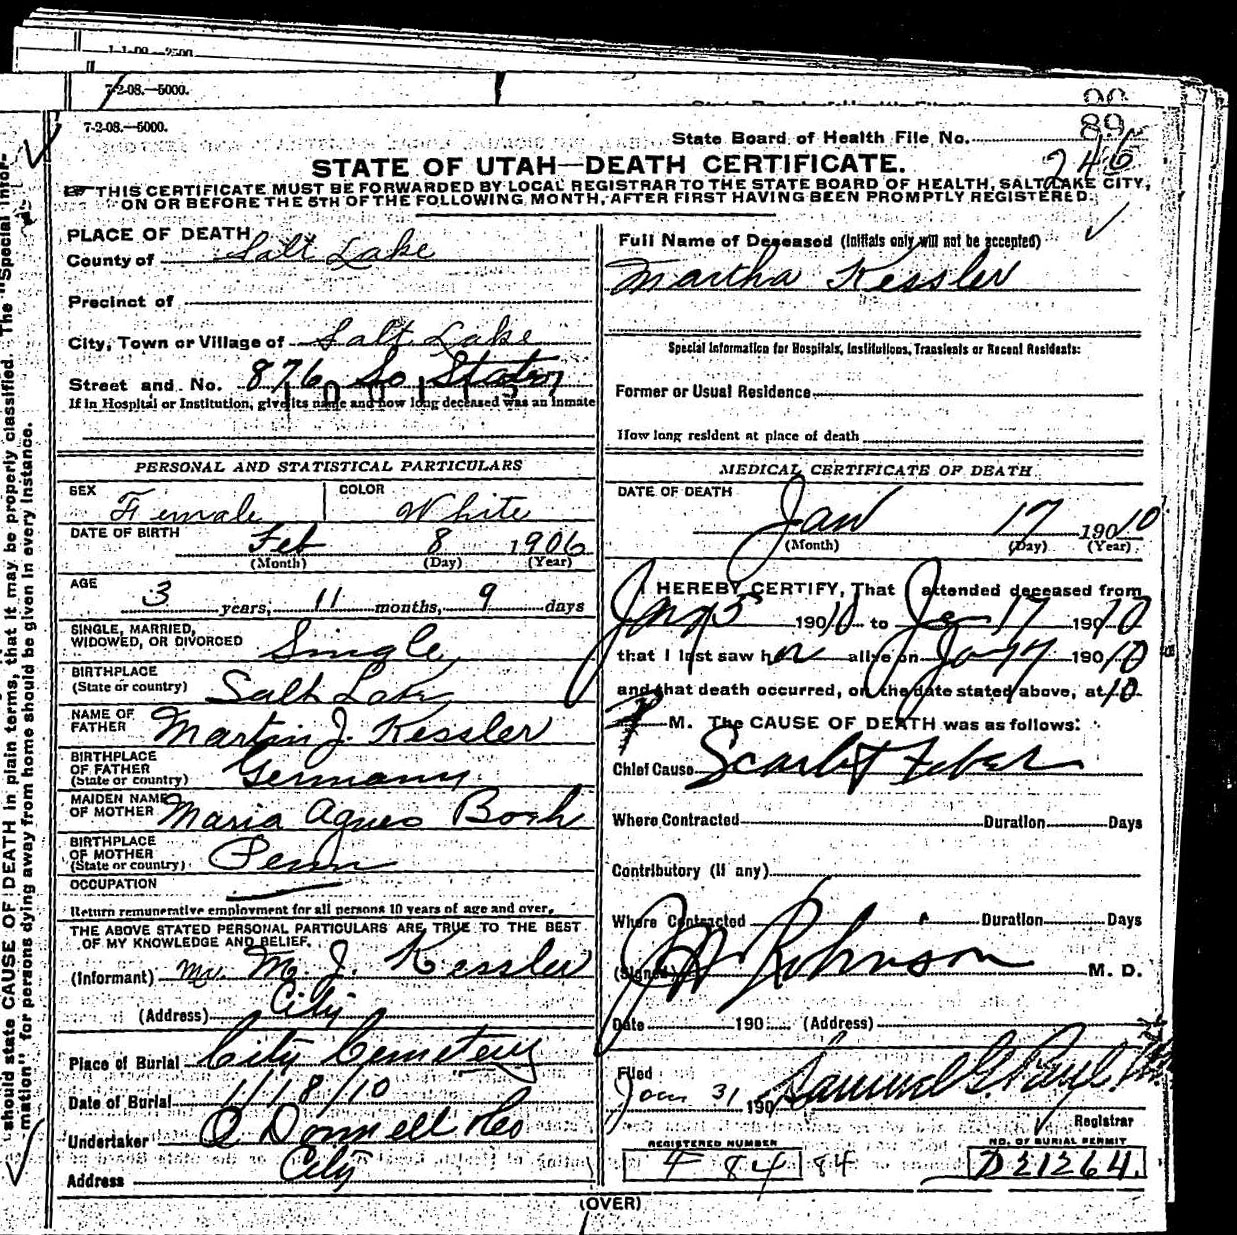 1-1-09—2500
7-2-08.—5000.
7-2-08.—5000.
State Board of Health File No.
89
246
STATE OF UTAH—DEATH CERTIFICATE.
THIS CERTIFICATE MUST BE FORWARDED BY LOCAL REGISTRAR TO THE STATE BOARD OF HEALTH, SALT LAKE CITY,
ON OR BEFORE THE 5TH OF THE FOLLOWING MONTH, AFTER FIRST HAVING BEEN PROMPTLY REGISTERED.
should state CAUSE OF DEATH in plain terms, that it may be properly classified. The "Special Infor-
mation" for persons dying away from home should be given in every instance.
PLACE OF DEATH
County of Salt Lake
Precinct of
City, Town or Village of Salt Lake
Street and No. 876 So State
If in Hospital or Institution, give its name and how long deceased was an inmate
PERSONAL AND STATISTICAL PARTICULARS
SEX Female COLOR White
DATE OF BIRTH Feb 8 1906
(Month) (Day) (Year)
AGE 3 years, 11 months, 9 days
SINGLE, MARRIED,
WIDOWED, OR DIVORCED Single
BIRTHPLACE
(State or country) Salt Lake
NAME OF
FATHER Martin J. Kessler
BIRTHPLACE
OF FATHER
(State or country) Germany
MAIDEN NAME
OF MOTHER Maria Agnes Bosh
BIRTHPLACE
OF MOTHER
(State or country) Penn
OCCUPATION
Return remunerative employment for all persons 10 years of age and over.
THE ABOVE STATED PERSONAL PARTICULARS ARE TRUE TO THE BEST
OF MY KNOWLEDGE AND BELIEF.
(Informant) Mr. M J. Kessler
(Address) City
Place of Burial City Cemetery
Date of Burial 1/18/10
Undertaker O Donnell & Co
Address City
Full Name of Deceased (Initials only will not be accepted)
Martha Kessler
Special Information for Hospitals, Institutions, Transients or Recent Residents:
Former or Usual Residence
How long resident at place of death
MEDICAL CERTIFICATE OF DEATH
DATE OF DEATH
Jan 17 19010
(Month) (Day) (Year)
I HEREBY CERTIFY, That I attended deceased from
Jan 15 19010 to Jan 17 19010
that I last saw her alive on Jan 17 19010
and that death occurred, on the date stated above, at 10
P M. The CAUSE OF DEATH was as follows:
Chief Cause Scarlet Fever
Where Contracted Duration Days
Contributory (if any)
Where Contracted Duration Days
(Signed) Johnson M. D.
Date 190 (Address)
Filed
Jan 31 190 Samuel G. Paul
Registrar
REGISTERED NUMBER NO. OF BURIAL PERMIT
F 84 84 D21264.
(OVER)